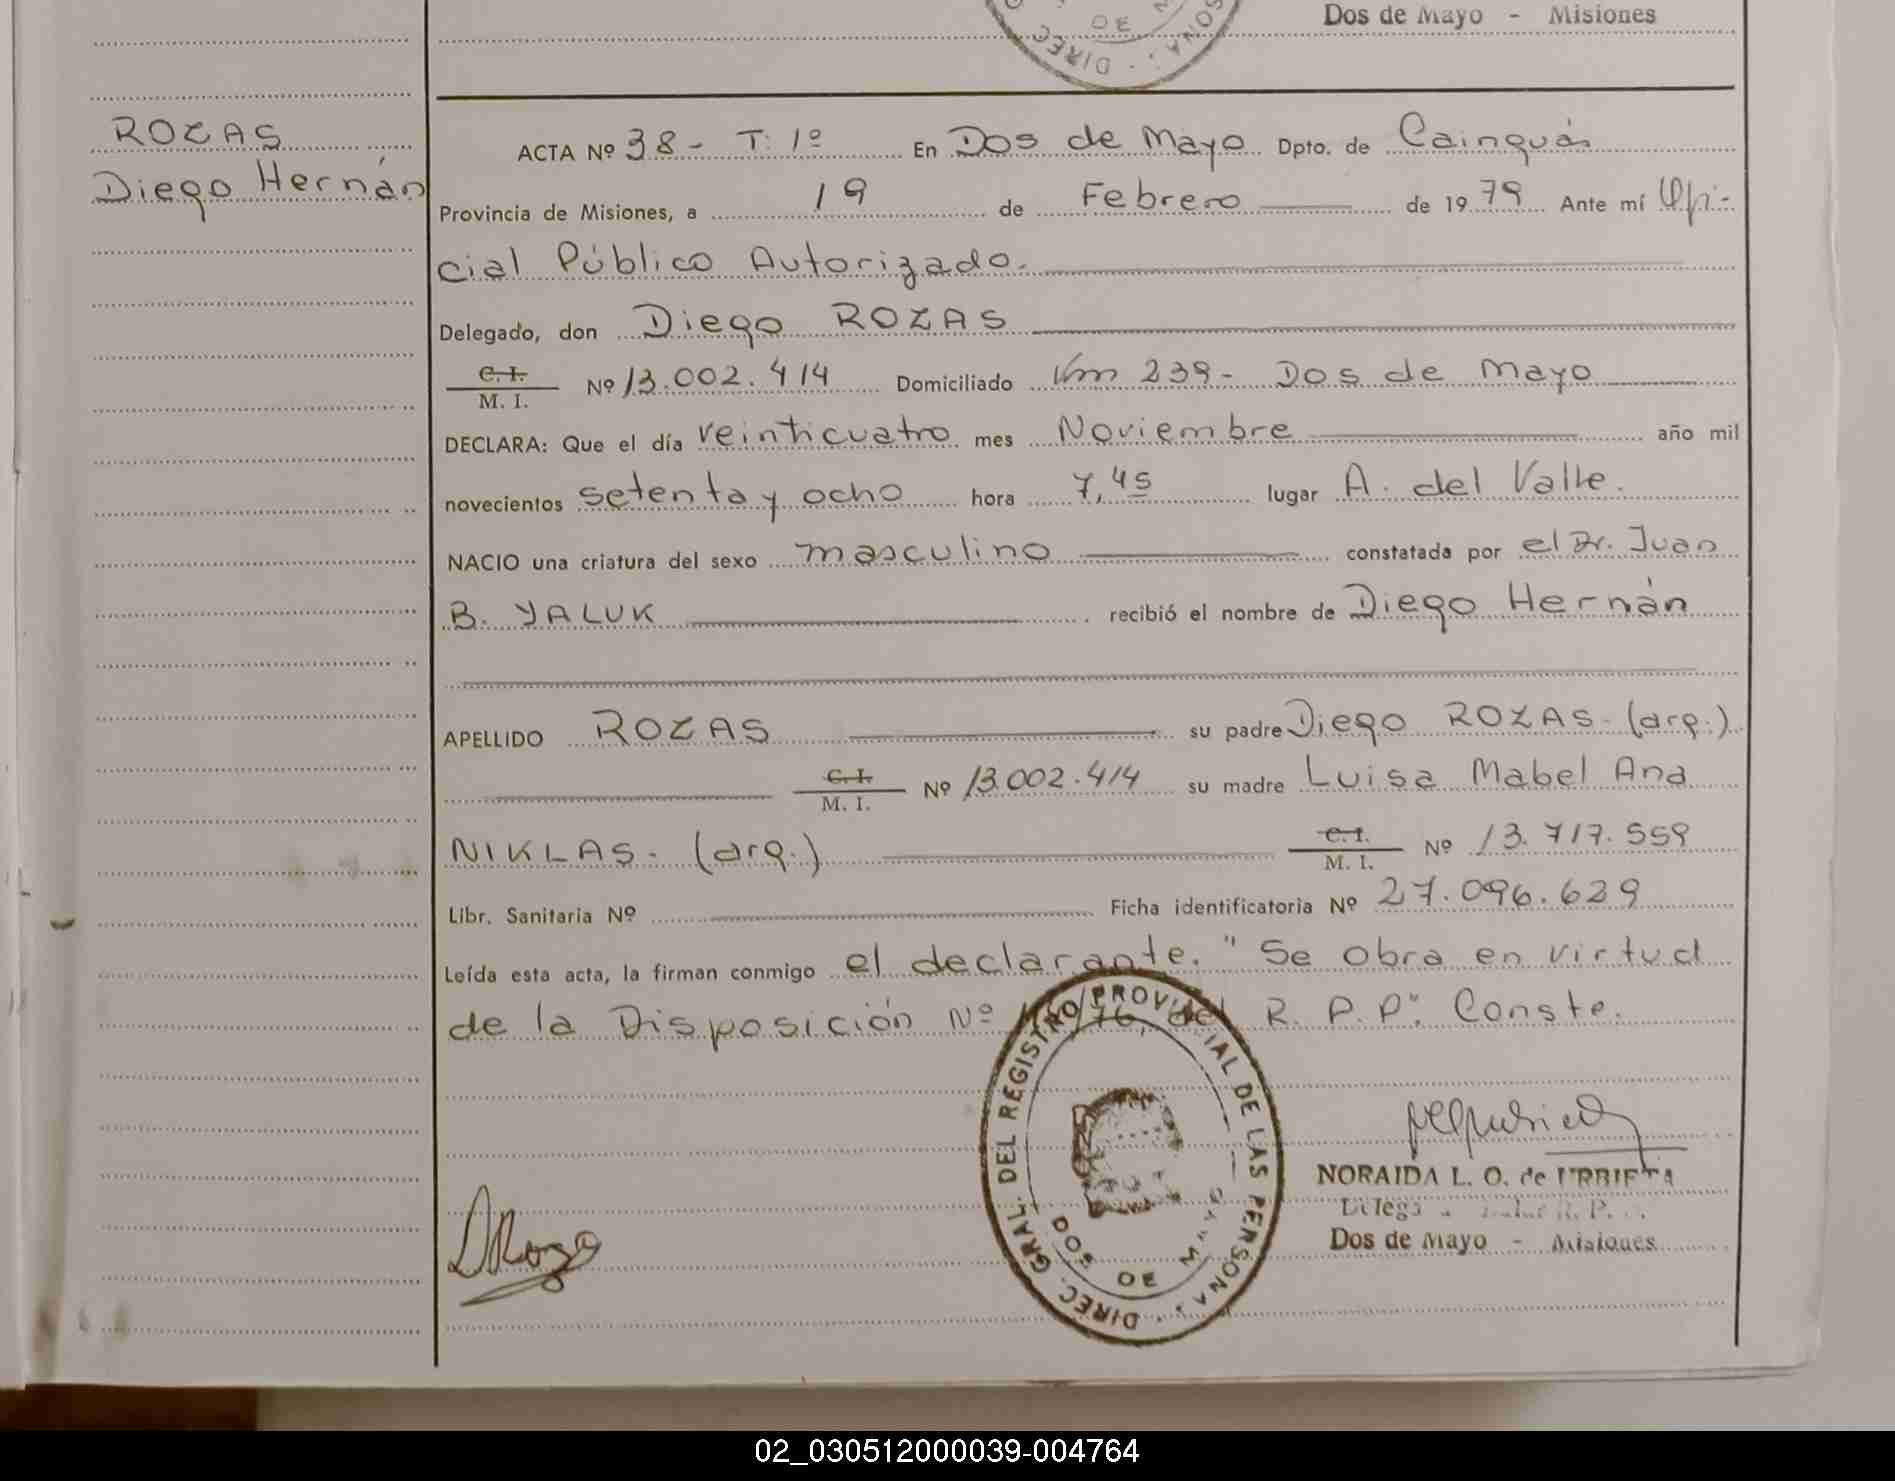 Dos de Mayo - Misiones
DIREC. OE SONA
ROZAS
Diego Hernán
ACTA Nº 38 - T: 1º En Dos de Mayo Dpto. de Cainguás
Provincia de Misiones, a 19 de Febrero de 1979 Ante mí Ofi-
cial Público Autorizado.
Delegado, don Diego ROZAS
C. I. M. I. Nº 13.002.414 Domiciliado Km 239 - Dos de Mayo
DECLARA: Que el día veinticuatro mes Noviembre año mil
novecientos setenta y ocho hora 7,45 lugar A. del Valle.
NACIO una criatura del sexo masculino constatada por el Dr. Juan
B. YALUK recibió el nombre de Diego Hernán
APELLIDO ROZAS su padre Diego ROZAS - (arg.)
C. I. M. I. Nº 13.002.414 su madre Luisa Mabel Ana
NIKLAS - (arg.) C. I. M. I. Nº 13.717.559
Libr. Sanitaria Nº Ficha identificatoria Nº 27.096.629
Leída esta acta, la firman conmigo el declarante. "Se obra en virtud
de la Disposición Nº /76, del R. P. P." Conste.
DIREC. GRAL. DEL REGISTRO PROVINCIAL DE LAS PERSONAS
DOS DE MAYO
NORAIDA L. O. de URRIETA
Dos de Mayo - Misiones
DRozas
02_030512000039-004764